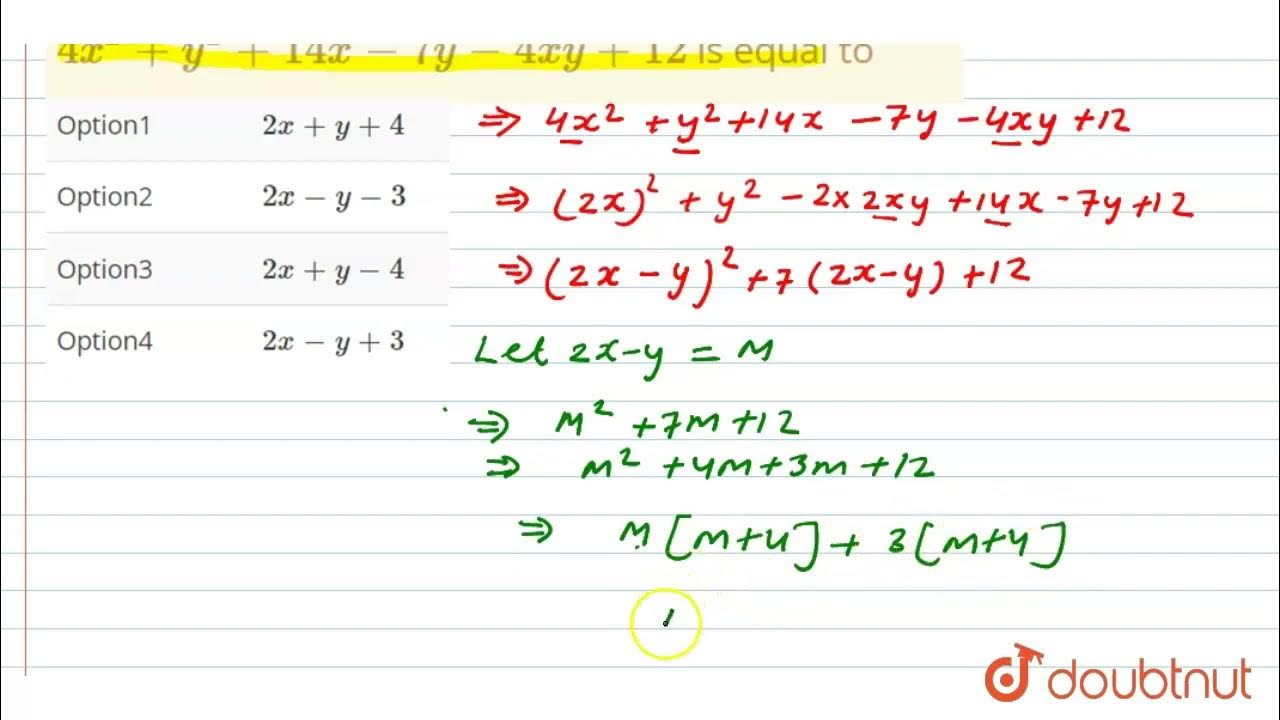 4x² + y² + 14x − 7y − 4xy + 12 is equal to
Option1 2x + y + 4
Option2 2x − y − 3
Option3 2x + y − 4
Option4 2x − y + 3
⇒ 4x² + y² + 14x − 7y − 4xy + 12
⇒ (2x)² + y² − 2x 2xy + 14x - 7y + 12
⇒ (2x − y)² + 7 (2x − y) + 12
Let 2x − y = M
⇒ M² + 7M + 12
⇒ m² + 4m + 3m + 12
⇒ M [m + 4] + 3 [m + 4]
doubtnut